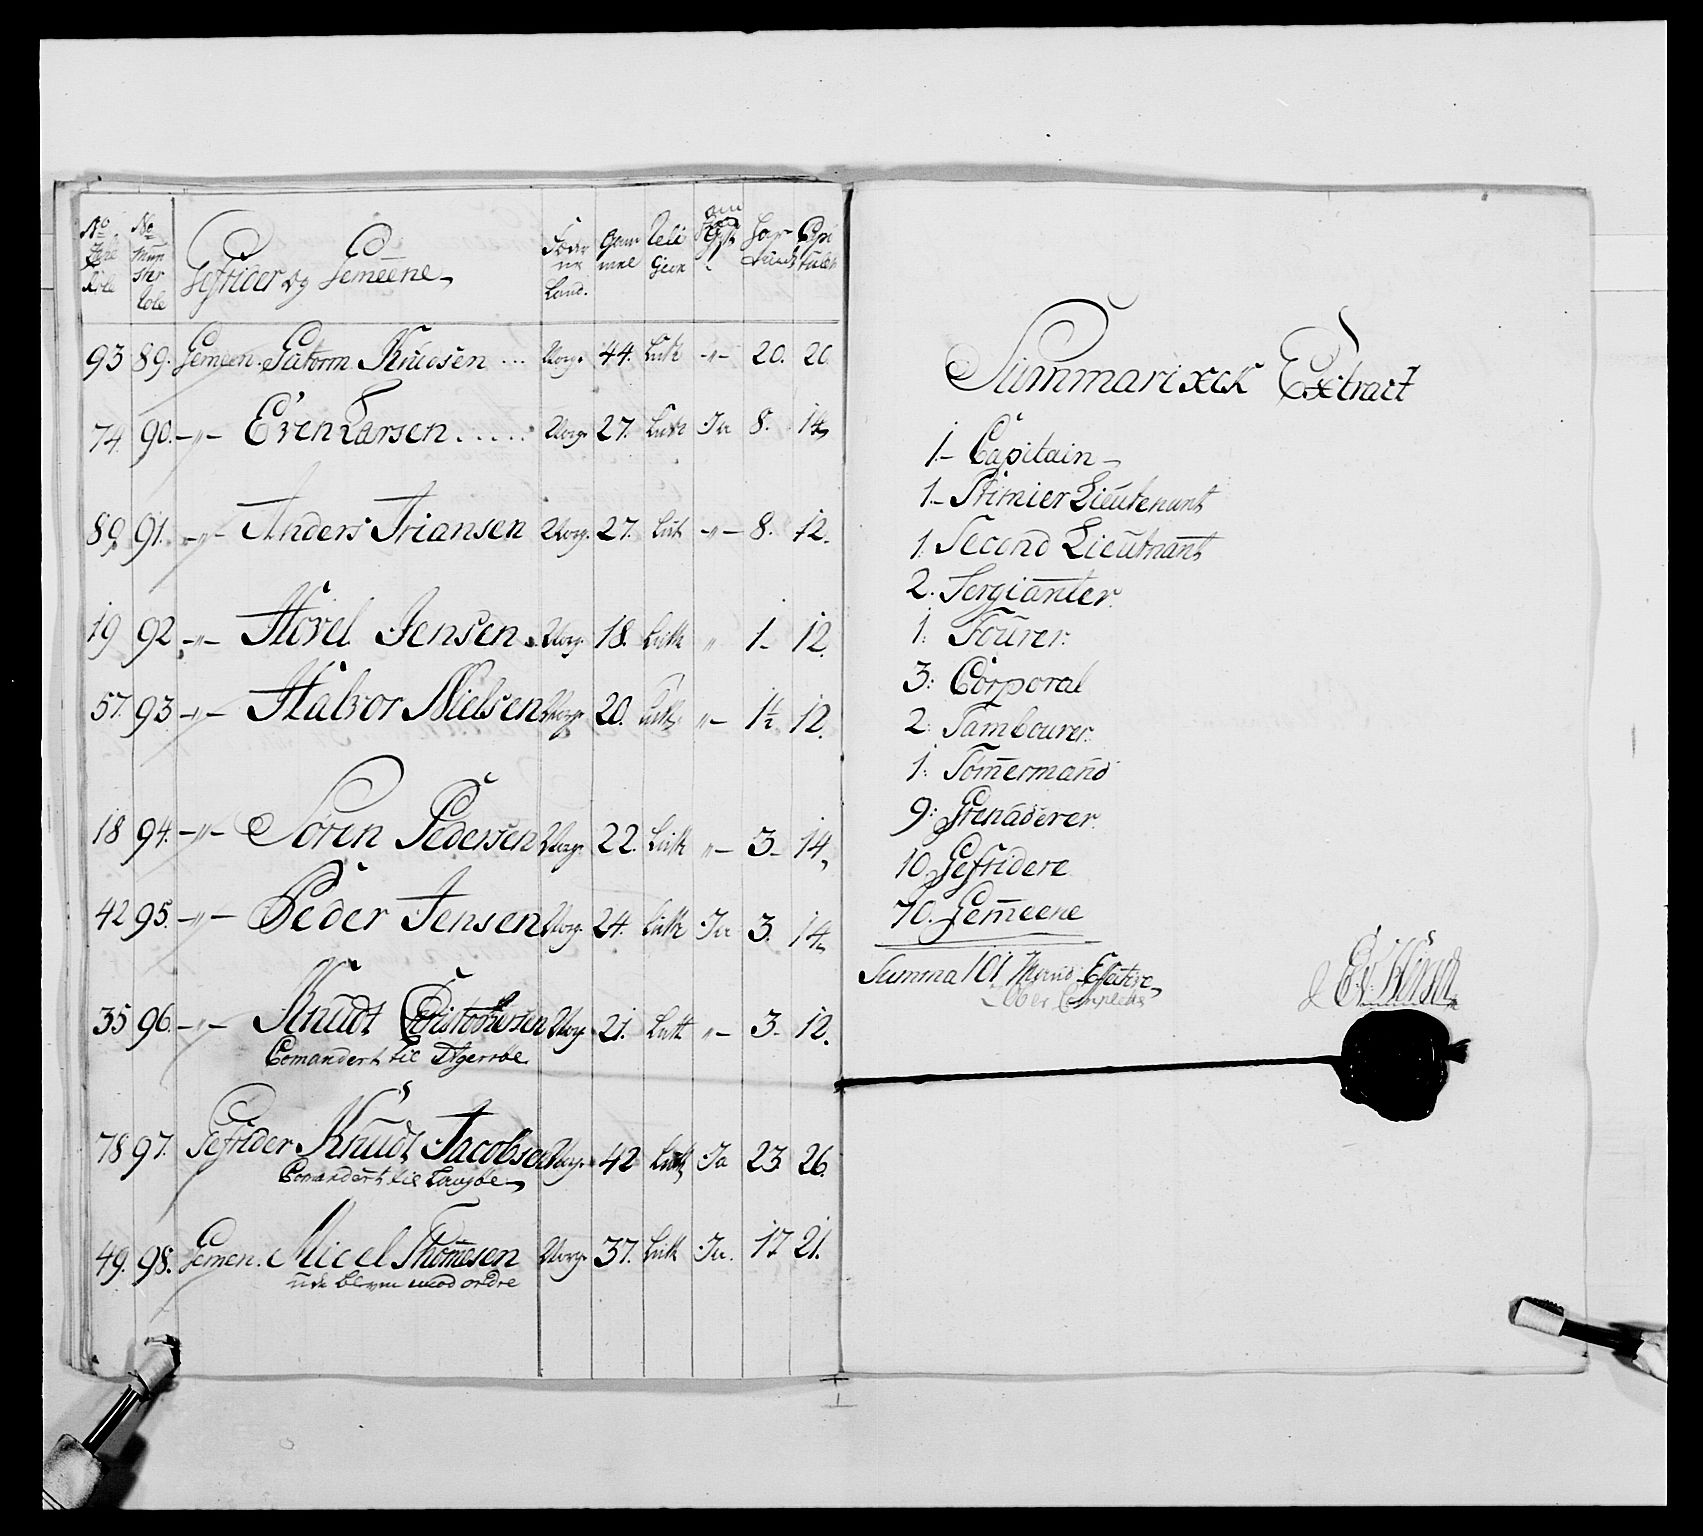 No No
Gefrider og Gemeene
Land.
93 89. Gemeen Gutorm Knudsen ... Norg. 44. Luth -"- 20. 20
74. 90. -"- Even Larsen ..... Norg. 27. Luth Ja 8. 14
89 91. -"- Anders Friansen Norg. 27. Luth -"- 8. 12.
19 92 -"- Hovel Jensen Norg. 18. Luth " 1- 12.
57. 93 -"- Halvor Nielsen Norg. 20. Luth "- 1½ 12.
18 94. -"- Sören Pedersen Norg. 22. Luth "- 3- 14
42 95. -"- Peder Jensen Norg. 24. Luth Ja 3. 14
35 96. -"- Knudt Christophersen Norg. 21. Luth "- 3- 12.
Comandert til Agerröe
78 97. Gefrider Knudt Jacobsen Norg. 42 Luth Ja 23. 26.
Comandert til Langöe
49. 98. Gemen. Micel Thomesen Norg. 37. Luth Ja. 17 21.
ude bleven mod ordre
Summarisck Extract
1- Capitain
1- Primier Lieutenant
1. Second Lieutnant
2. Sergianter
1: Fourer.
3: Corporal
2: Tambourer
1: Tömermand
9: Grenaderer
10. Gefridere
70. Gemeene
Summa 101 Mand Effective
Ober Complete